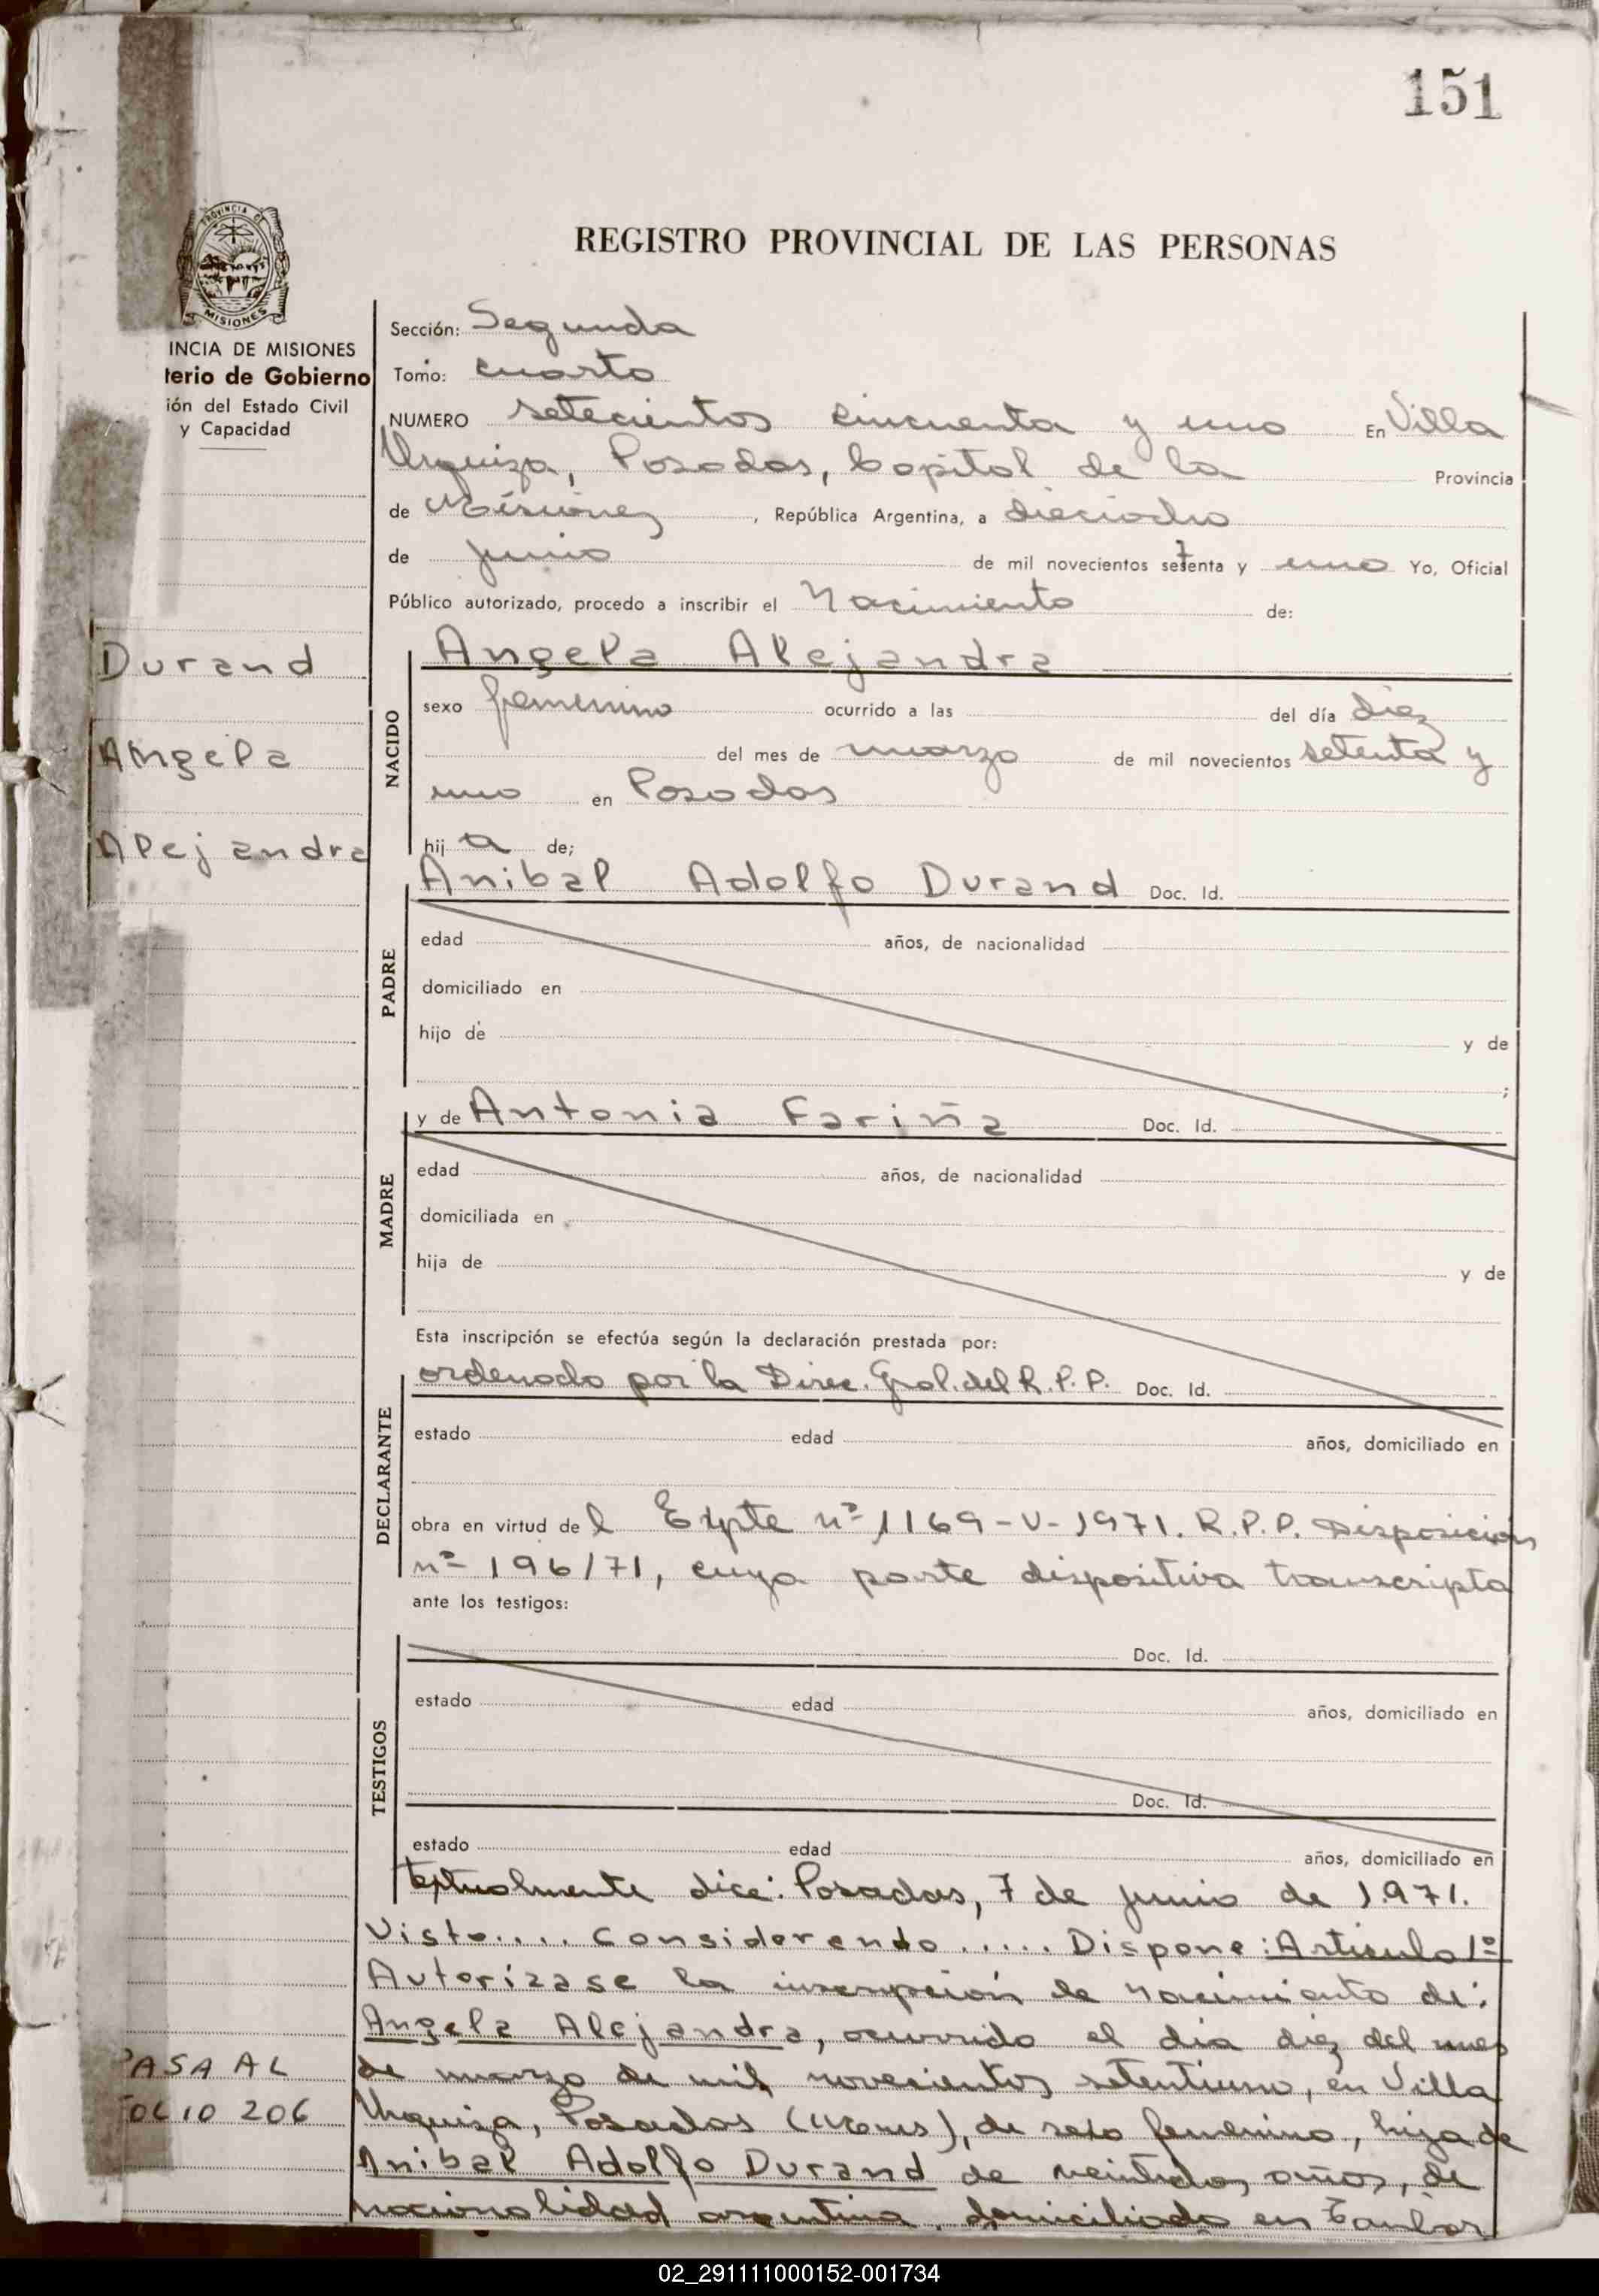 151
PROVINCIA DE
MISIONES
REGISTRO PROVINCIAL DE LAS PERSONAS
INCIA DE MISIONES
terio de Gobierno
ión del Estado Civil
y Capacidad
Sección: Segunda
Tomo: cuarto
NUMERO setecientos cincuenta y uno En Villa
Urquiza, Posadas, Capital de la Provincia
de Misiones, República Argentina, a dieciocho
de junio de mil novecientos setenta y uno Yo, Oficial
Público autorizado, procedo a inscribir el Nacimiento de:
Durand
Angela
Alejandra
NACIDO
Angela Alejandra
sexo femenino ocurrido a las del día diez
del mes de marzo de mil novecientos setenta y
uno en Posadas
hij a de;
PADRE
Anibal Adolfo Durand Doc. Id.
edad años, de nacionalidad
domiciliado en
hijo de y de
;
MADRE
y de Antonia Fariña Doc. Id.
edad años, de nacionalidad
domiciliada en
hija de y de
Esta inscripción se efectúa según la declaración prestada por:
DECLARANTE
ordenado por la Direc. Gral. del R.P.P. Doc. Id.
estado edad años, domiciliado en
obra en virtud de l Expte nº 1169-V-1971. R.P.P. Disposición
nº 196/71, cuya parte dispositiva transcripta
ante los testigos:
TESTIGOS
Doc. Id.
estado edad años, domiciliado en
Doc. Id.
estado edad años, domiciliado en
textualmente dice: Posadas, 7 de junio de 1.971.
Visto.... Considerando ..... Dispone: Artículo 1º
Autorízase la inscripción de nacimiento de:
Angela Alejandra, ocurrido el día diez del mes
de marzo de mil novecientos setentiuno, en Villa
Urquiza, Posadas (Mnes), de sexo femenino, hija de
Anibal Adolfo Durand de veintidos años, de
nacionalidad argentina, domiciliado en
PASA AL
FOLIO 206
02_291111000152-001734